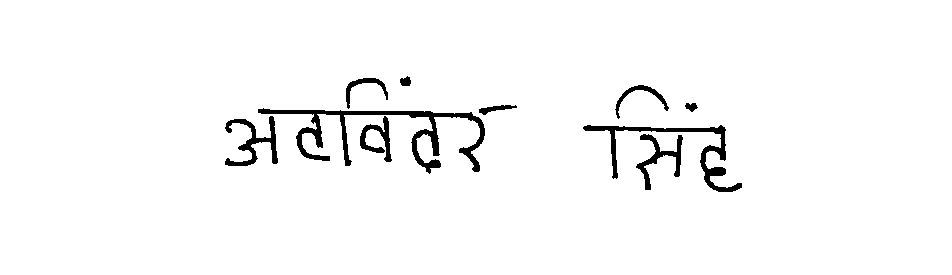 अटविंदर सिंह